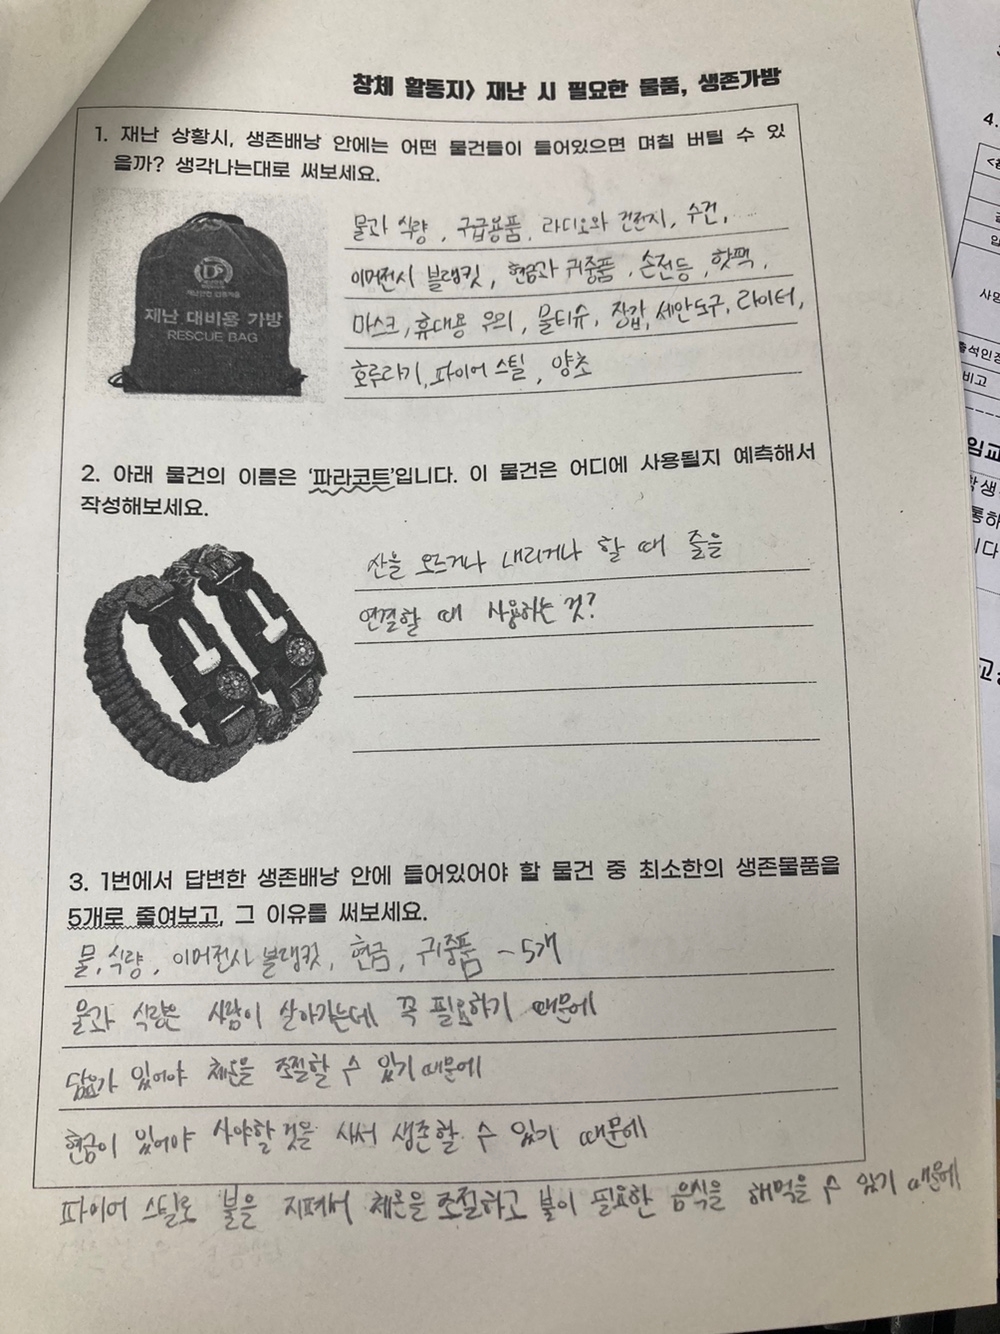 창체 활동지> 재난 시 필요한 물품, 생존가방
1. 재난 상황시, 생존배낭 안에는 어떤 물건들이 들어있으면 며칠 버틸 수 있
을까? 생각나는대로 써보세요.
재난 대비용 가방
RESCUE BAG
물과 식량, 구급용품, 라디오와 건전지, 수건,
이머전시 블랭킷, 현금과 귀중품, 손전등, 핫팩,
마스크, 휴대용 우의, 물티슈, 장갑, 세안도구, 라이터,
호루라기, 파이어 스틸, 양초
2. 아래 물건의 이름은 '파라코트'입니다. 이 물건은 어디에 사용될지 예측해서
작성해보세요.
산을 오르거나 내리거나 할 때 줄을
연결할 때 사용하는 것?
3. 1번에서 답변한 생존배낭 안에 들어있어야 할 물건 중 최소한의 생존물품을
5개로 줄여보고, 그 이유를 써보세요.
물, 식량, 이머전시 블랭킷, 현금, 귀중품 - 5개
물과 식량은 사람이 살아가는데 꼭 필요하기 때문에
담요가 있어야 체온을 조절할 수 있기 때문에
현금이 있어야 사야할 것을 사서 생존할 수 있기 때문에
파이어 스틸로 불을 지펴서 체온을 조절하고 불이 필요한 음식을 해먹을 수 있기 때문에
4.
비고